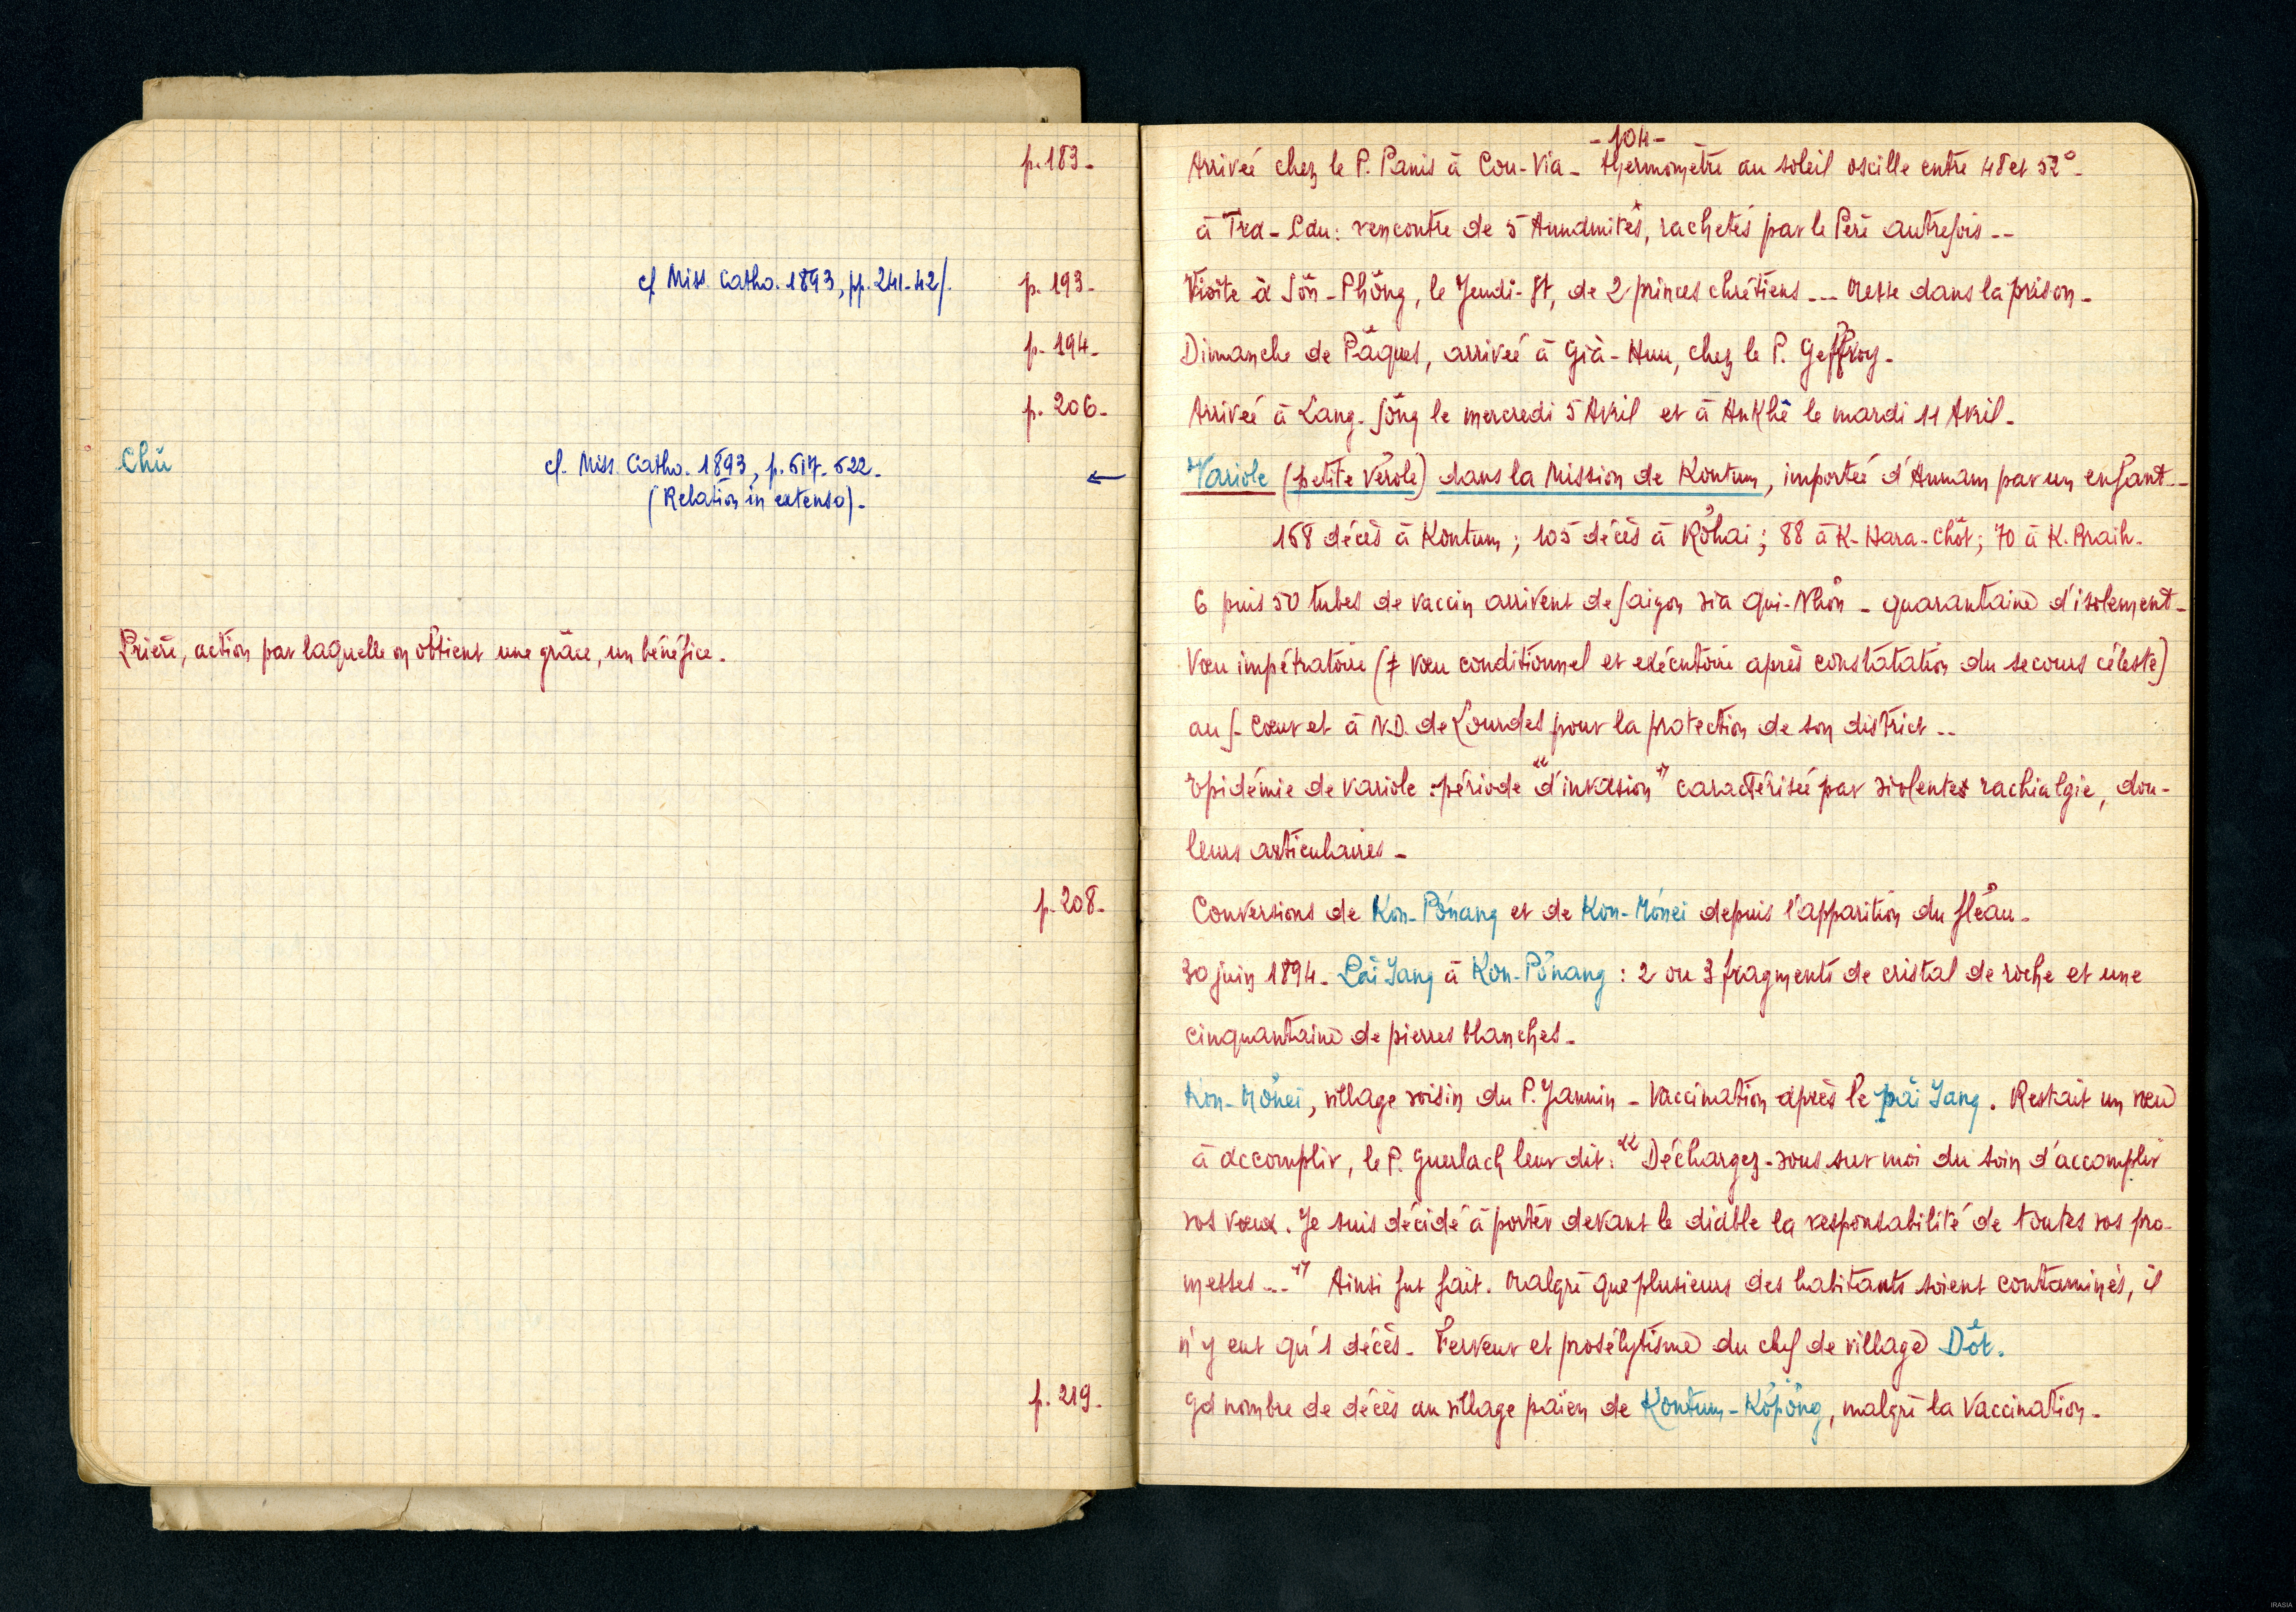 p. 183-
cf Miss. Catho. 1893, pp. 241-42/. p. 193-
p. 194-
p. 206-
Chŭ cf. Miss. Catho. 1893, p. 517-522. ←
(Relation in extenso)-
Prière, action par laquelle on obtient une grâce, un bénéfice.
p. 208-
p. 219-
- 104 -
Arrivée chez le P. Panis à Cou-Via - thermomètre au soleil oscille entre 48 et 52° -
à Tra-Cau: rencontre de 5 Annamites, rachetés par le Père autrefois --
Visite à Sön-Phöng, le Jeudi-St, de 2 princes chrétiens --- Messe dans la prison -
Dimanche de Pâques, arrivée à Già-Huu, chez le P. Geffroy -
Arrivée à Lang-Sông le mercredi 5 Avril et à AnKhê le mardi 11 Avril -
Variole (petite vérole) dans la Mission de Kontum, importée d'Annam par un enfant --
168 décès à Kontum; 105 décès à Röhai; 88 à K-Hara-Chöt; 70 à K. Braih -
6 puis 50 tubes de vaccin arrivent de Saigon via Qui-Nhön - quarantaine d'isolement -
Vœu impétratoire (≠ vœu conditionnel et exécutoire après constatation du secours céleste)
au S. Cœur et à N.D. de Lourdes pour la protection de son district --
Epidémie de variole: période "d'invasion" caractérisée par violentes rachialgie, dou-
leurs articulaires -
Conversions de Kon-Pönang et de Kon-Mönei depuis l'apparition du fléau -
30 juin 1894 - Päi Yang à Kon-Pönang: 2 ou 3 fragments de cristal de roche et une
cinquantaine de pierres blanches -
Kon-Mönei, village voisin du P. Jannin - Vaccination après le päi Yang. Restait un vœu
à accomplir, le P. Guerlach leur dit: "Déchargez-vous sur moi du soin d'accomplir
vos vœux. Je suis décidé à porter devant le diable la responsabilité de toutes vos pro-
messes ---" Ainsi fut fait. Malgré que plusieurs des habitants soient contaminés, il
n'y eut qu'1 décès - Ferveur et prosélytisme du chef de village Dôt.
Gd nombre de décès au village païen de Kontum-Köpöng, malgré la vaccination -